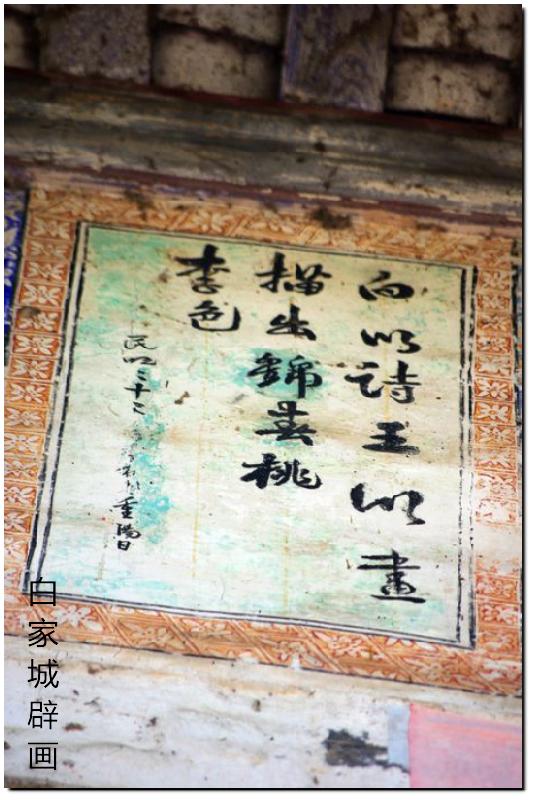 白以詩王以畫
描出錦春桃
李色
民国三十二 重陽日
白家城辟画